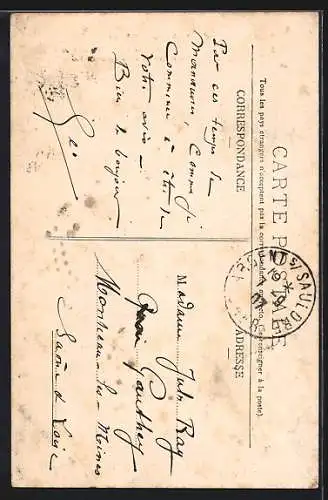 CARTE POSTALE
Tous les pays étrangers n'acceptent pas la correspondance au recto. (Se renseigner à la poste).
CORRESPONDANCE
ADRESSE
Par ces temps de
Manœuvres, Comment
Commence à être de
Votre avis —
Bien le bonjour
Géo
Madame Jules Ray
Quai Gauthey
Montceau-les-Mines
Saône & Loire
ST SAULGE